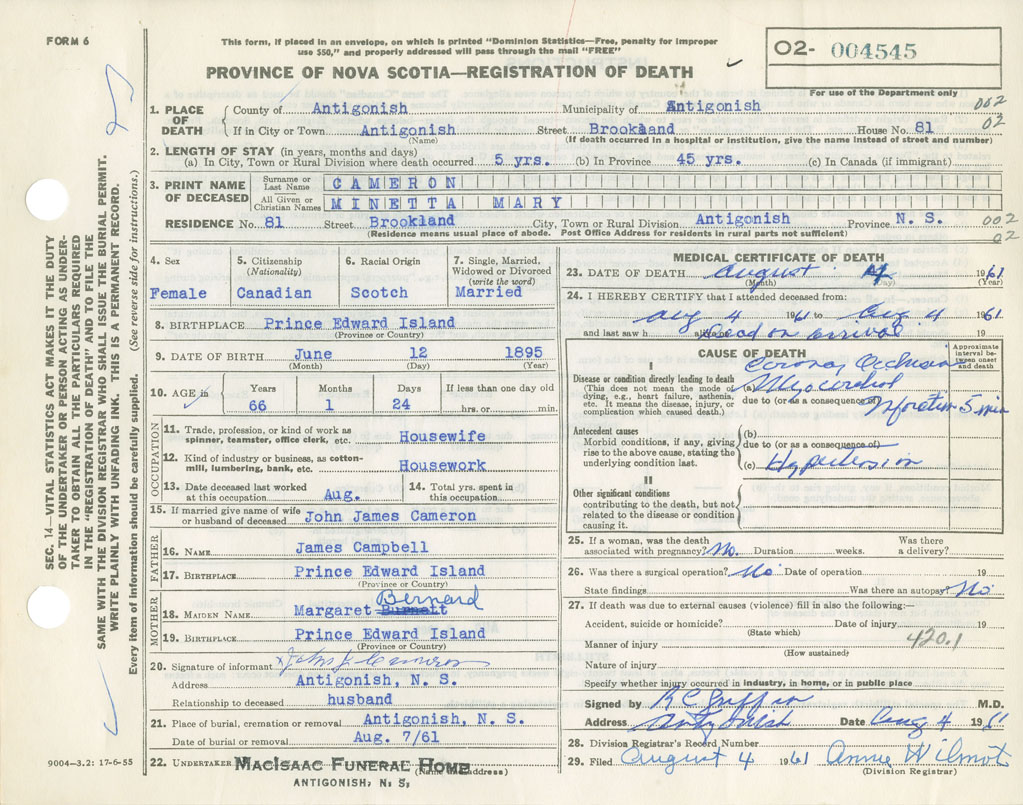 FORM 6
This form, if placed in an envelope, on which is printed "Dominion Statistics—Free, penalty for improper
use $50," and properly addressed will pass through the mail "FREE"
PROVINCE OF NOVA SCOTIA—REGISTRATION OF DEATH
O2- 004545
For use of the Department only
SEC. 14—VITAL STATISTICS ACT MAKES IT THE DUTY
OF THE UNDERTAKER OR PERSON ACTING AS UNDER-
TAKER TO OBTAIN ALL THE PARTICULARS REQUIRED
IN THE "REGISTRATION OF DEATH" AND TO FILE THE
SAME WITH THE DIVISION REGISTRAR WHO SHALL ISSUE THE BURIAL PERMIT.
WRITE PLAINLY WITH UNFADING INK. THIS IS A PERMANENT RECORD.
Every item of Information should be carefully supplied. (See reverse side for instructions.)
1. PLACE OF DEATH County of Antigonish Municipality of Antigonish 002
If in City or Town Antigonish Street Brookland House No. 81 02
(Name) (If death occurred in a hospital or institution, give the name instead of street and number)
2. LENGTH OF STAY (in years, months and days)
(a) In City, Town or Rural Division where death occurred 5 yrs. (b) In Province 45 yrs. (c) In Canada (if immigrant)
3. PRINT NAME OF DECEASED Surname or Last Name CAMERON
All Given or Christian Names MINETTA MARY
RESIDENCE No. 81 Street Brookland City, Town or Rural Division Antigonish Province N. S. 002
(Residence means usual place of abode. Post Office Address for residents in rural parts not sufficient) 02
4. Sex 5. Citizenship (Nationality) 6. Racial Origin 7. Single, Married, Widowed or Divorced (write the word)
Female Canadian Scotch Married
8. BIRTHPLACE Prince Edward Island
(Province or Country)
9. DATE OF BIRTH June 12 1895
(Month) (Day) (Year)
10. AGE in Years Months Days If less than one day old
66 1 24 hrs. or min.
OCCUPATION
11. Trade, profession, or kind of work as
spinner, teamster, office clerk, etc. Housewife
12. Kind of industry or business, as cotton-
mill, lumbering, bank, etc. Housework
13. Date deceased last worked at this occupation Aug. 14. Total yrs. spent in this occupation
15. If married give name of wife
or husband of deceased John James Cameron
FATHER
16. NAME James Campbell
17. BIRTHPLACE Prince Edward Island
(Province or Country)
MOTHER
Bernard
18. MAIDEN NAME Margaret Burnett
19. BIRTHPLACE Prince Edward Island
(Province or Country)
20. Signature of informant x John J. Cameron
Address Antigonish, N. S.
Relationship to deceased husband
21. Place of burial, cremation or removal Antigonish, N. S.
Date of burial or removal Aug. 7/61
22. UNDERTAKER MACISAAC FUNERAL HOME
(Name and address)
ANTIGONISH, N. S.
9004—3.2: 17-6-55
MEDICAL CERTIFICATE OF DEATH
23. DATE OF DEATH August 4 1961
(Month) (Day) (Year)
24. I HEREBY CERTIFY that I attended deceased from:
Aug 4 1961 to Aug 4 1961
and last saw h alive on Dead on arrival 19
CAUSE OF DEATH Approximate interval between onset and death
I Coronary Occlusion
Disease or condition directly leading to death (a) Myocardial
(This does not mean the mode of dying, e.g., heart failure, asthenia, etc. It means the disease, injury, or complication which caused death.) due to (or as a consequence of) Infarction 5 min
Antecedent causes (b)
Morbid conditions, if any, giving rise to the above cause, stating the underlying condition last. due to (or as a consequence of)
(c) Hypertension
II
Other significant conditions
contributing to the death, but not
related to the disease or condition
causing it.
25. If a woman, was the death associated with pregnancy? No. Duration weeks. Was there a delivery?
26. Was there a surgical operation? No Date of operation 19
State findings Was there an autopsy? No
27. If death was due to external causes (violence) fill in also the following:—
Accident, suicide or homicide? Date of injury 19
(State which)
Manner of injury 420.1
(How sustained)
Nature of injury
Specify whether injury occurred in industry, in home, or in public place
Signed by R C Griffin M.D.
Address Antigonish Date Aug 4 1961
28. Division Registrar's Record Number
29. Filed August 4 1961 Annie Wilmot
(Division Registrar)